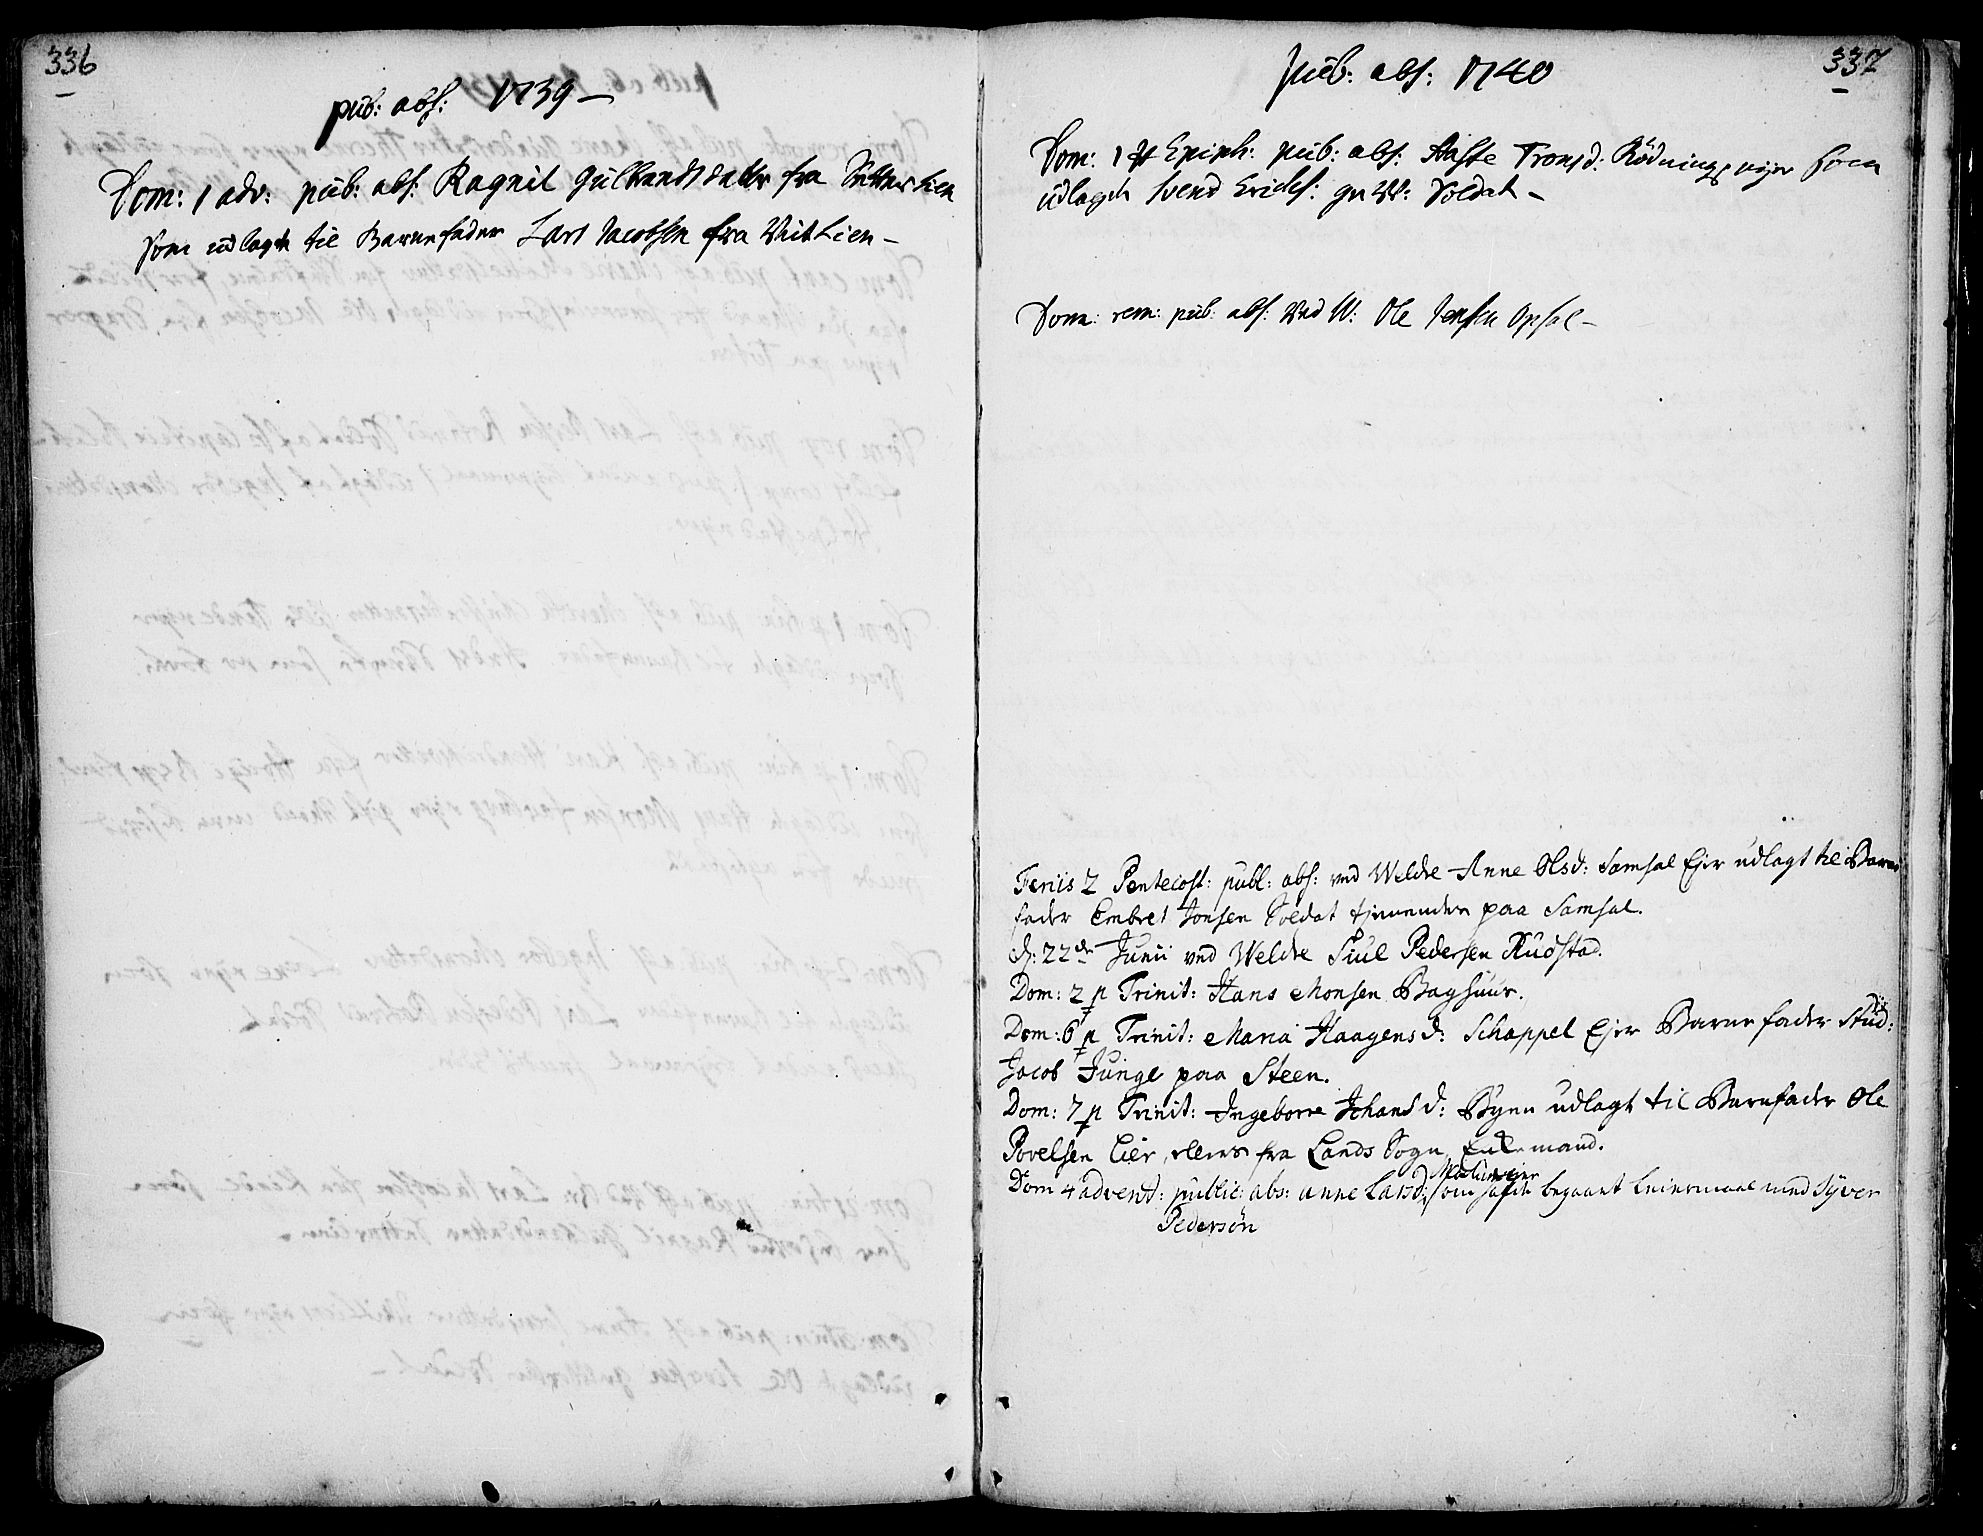 336
pub: abs: 1739 –
Dom: 1 adv: pub: abs: Ragnil Gulbrandsdatter fra Lien
som udlagde til Barnefader Lars Jacobsen fra Lien –
337
pub: abs: 1740
Dom: 1 p Epiph: pub: abs: Aaste Tronsd: Rødnings ejer som
udlagde Svend Erichs: gev: Soldat –
Dom: rem: pub: abs: ved W: Ole Jensen Opsal –
Feriis 2 Pentecost: publ: abs: ved Weldre Anne Olsd: Samsal Ejer udlagt til Barne
fader Embret Jonsen Soldat tjenendes paa Samsal.
d: 22de Junii ved Weldre Siul Pedersen Rudstad.
Dom: 2 p Trinit: Hans Monsen Baghuus.
Dom: 6 p Trinit: Maria Haagensd: Schappel Ejer Barnefader Stud:
Jacob Junge paa Steen.
Dom: 7 p Trinit: Ingeborre Johansd: Byen udlagt til Barnfader Ole
Povelsen Lier, fra Lands Sogn, Enkemand.
Dom 4 advent: public: abs: anne Larsd: som hafde begaaet leiermaal med Syver
Pedersøn